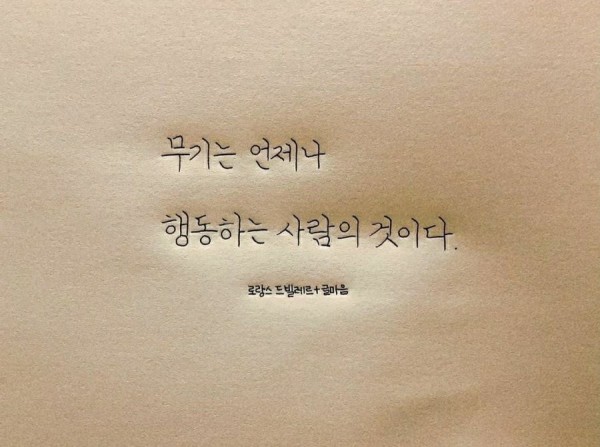 무기는 언제나
행동하는 사람의 것이다.
로랑스 드빌레르+글마음